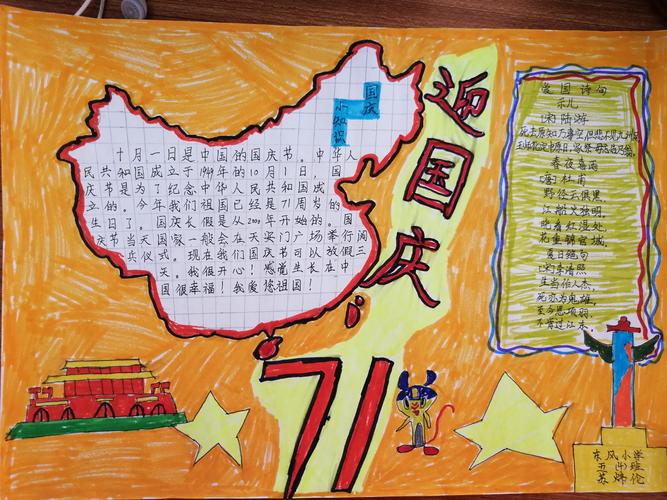 迎国庆
国庆
小知识
十月一日是中国的国庆节。中华人
民共和国成立于1949年的10月1日,国
庆节是为了纪念中华人民共和国成
立的。今年我们祖国已经是71周岁的
生日了。国庆长假是从2000年开始的。国
庆节当天国家一般会在天安门广场举行阅
兵仪式。现在我们国庆节可以放假三
天。我很开心!感觉生长在中
国很幸福!我爱您祖国!
71
爱国诗句
示儿
[宋]陆游
死去原知万事空,但悲不见九州同。
王师北定中原日,家祭
春夜喜雨
[唐]杜甫
野径云俱黑,
江船火独明。
晓看红湿处,
花重锦官城。
夏日绝句
[宋]李清照
生当作人杰,
死亦为鬼雄。
至今思项羽,
不肯过江东。
东风小学
五(4)班
苏炜伦